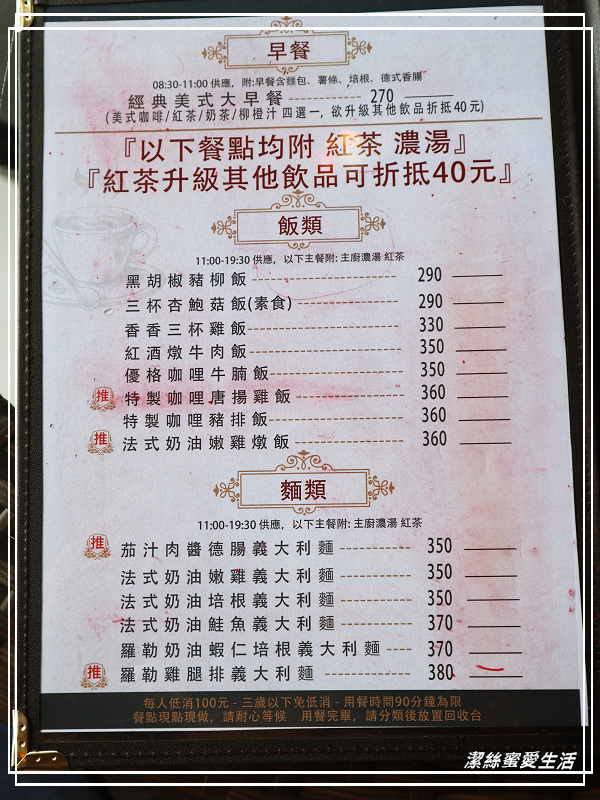 早餐
08:30-11:00 供應, 附:早餐含麵包、薯條、培根、德式香腸
經典美式大早餐 ------------- 270
(美式咖啡/紅茶/奶茶/柳橙汁 四選一, 欲升級其他飲品折抵40元)
『以下餐點均附 紅茶 濃湯』
『紅茶升級其他飲品可折抵40元』
飯類
11:00-19:30 供應, 以下主餐附: 主廚濃湯 紅茶
黑胡椒豬柳飯 ------------- 290
三杯杏鮑菇飯(素食) ------------- 290
香香三杯雞飯 ------------- 330
紅酒燉牛肉飯 ------------- 350
優格咖哩牛腩飯 ------------- 350
推 特製咖哩唐揚雞飯 ------------- 360
特製咖哩豬排飯 ------------- 360
推 法式奶油嫩雞燉飯 ------------- 360
麵類
11:00-19:30 供應, 以下主餐附: 主廚濃湯 紅茶
推 茄汁肉醬德腸義大利麵 ---------- 350
法式奶油嫩雞義大利麵 ---------- 350
法式奶油培根義大利麵 ---------- 350
法式奶油鮭魚義大利麵 ---------- 370
羅勒奶油蝦仁培根義大利麵 ---- 370
推 羅勒雞腿排義大利麵 ---------- 380
每人低消100元 - 三歲以下免低消 - 用餐時間90分鐘為限
餐點現點現做, 請耐心等候 用餐完畢, 請分類後放置回收台
潔絲蜜愛生活